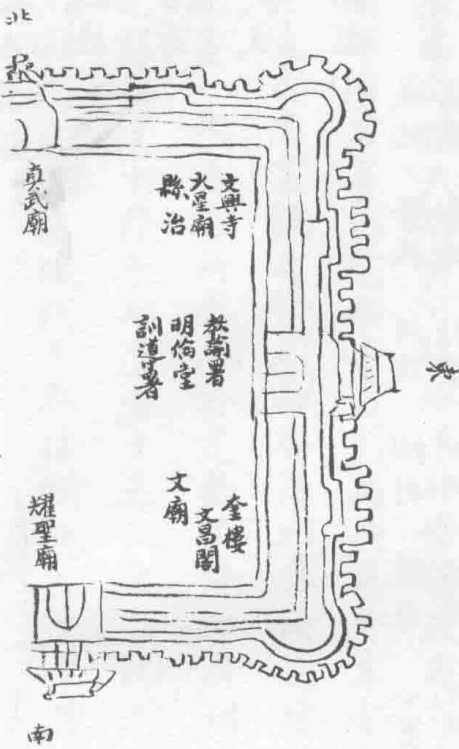 北
真武廟
文興寺
火星廟
縣治
教諭署
明倫堂
訓導署
東
奎樓
文昌閣
文廟
燿聖廟
南